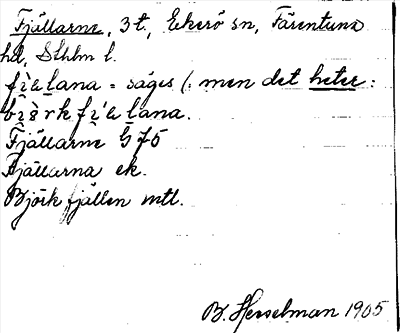 Fjällarne, 3 t., Ekerö sn, Färentuna
hd, Sthlm l.
fìɛlana = säges (: men det heter:
bìɛ̀rkfɩ'ɛlana.
Fjällarne G 75
Fjällarna ek.
Björkfjällen mtl.
B. Hesselman 1905